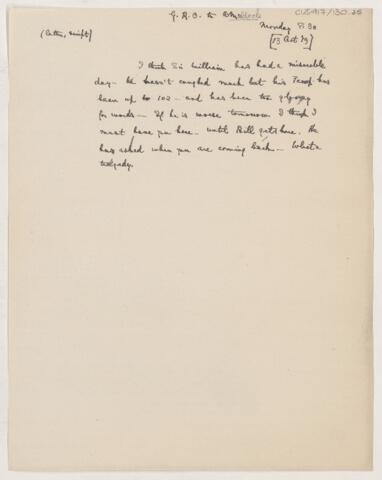 CUS417/130.25
G. R. O. to
Monday 8.30
[13 Oct 19]
I think Sir William has had a miserable
day - He hasn't coughed much but his Temp has
been up to 102 - and has been too
for words - If he is worse tomorrow I think I
must have you here until Bill gets here. He
has asked when you are coming back - What a
tragedy.